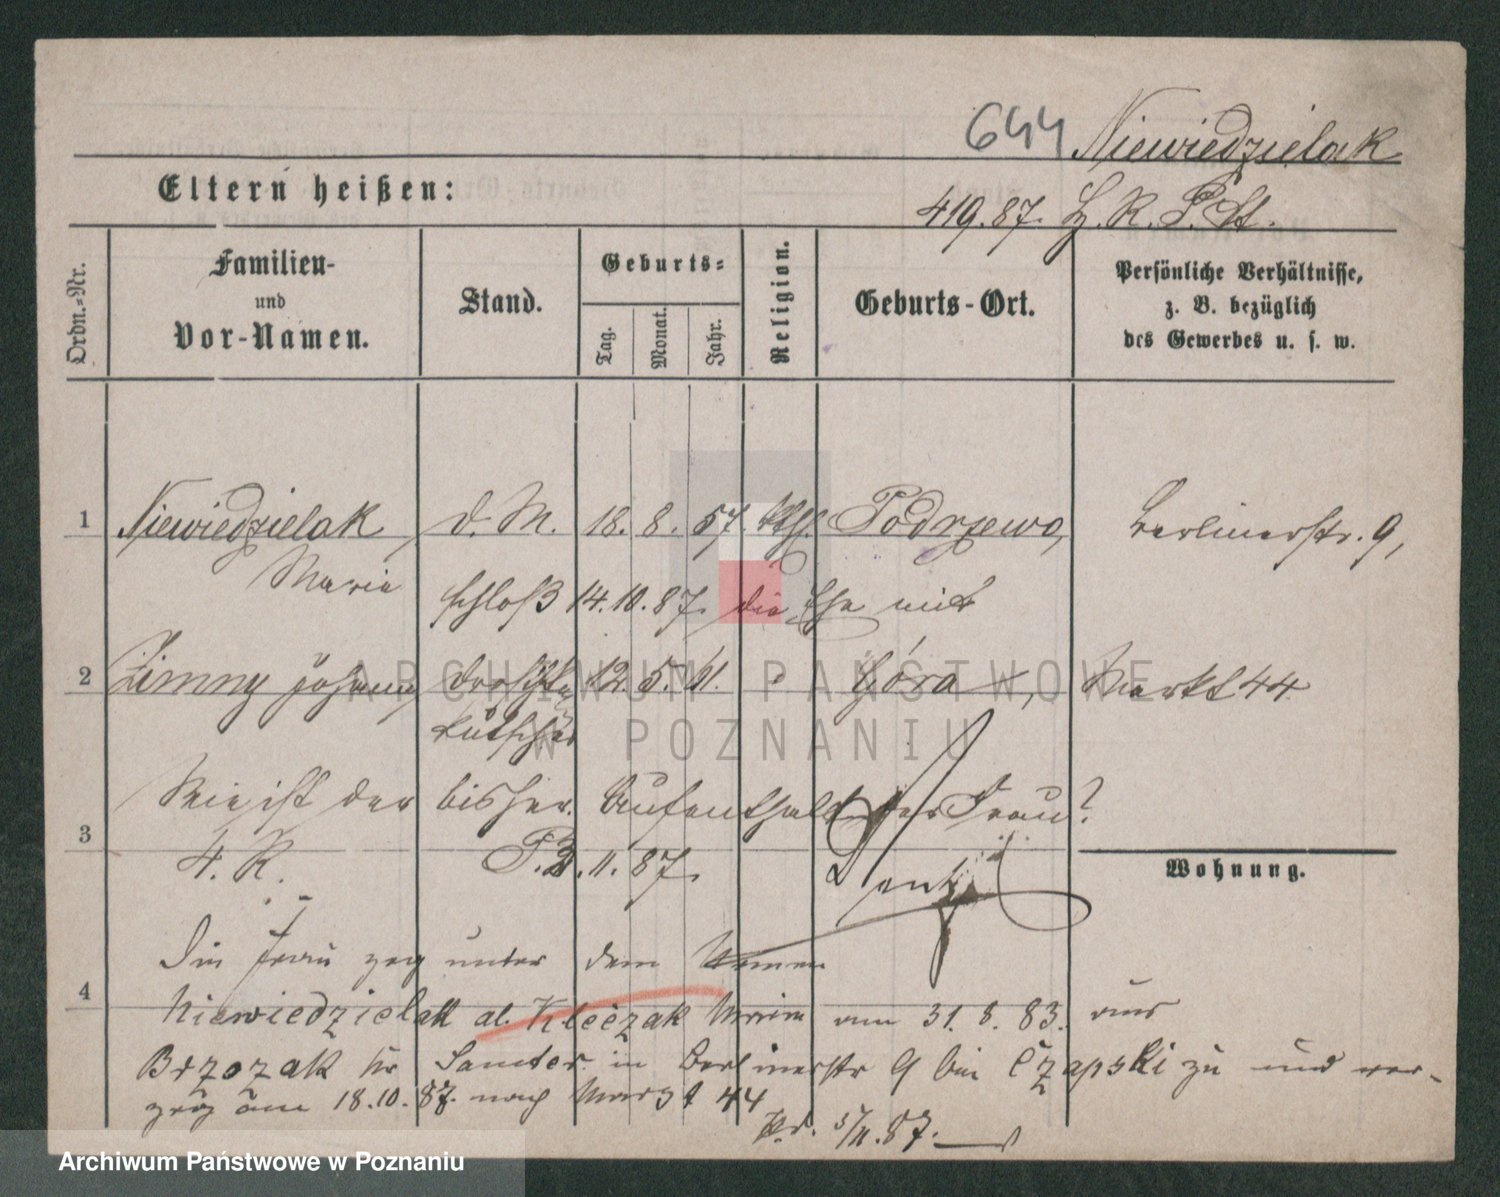 644 Niewiedzielak
Eltern heißen:
419.87. H. R. P. St.
Ordn.=Nr.
Familien-
und
Vor-Namen.
Stand.
Geburts=
Tag.
Monat.
Jahr.
Religion.
Geburts-Ort.
Persönliche Verhältnisse,
z. B. bezüglich
des Gewerbes u. s. w.
1 Niewiedzielak d. M. 18. 8. 57. kth. Podrzewo, Berlinerstr. 9,
Marie schloß 14.10.87. die Ehe mit
2 Zimny Johann Droschken 12. 5. 61. Góra, Markt 44
kutscher
Wie ist der bisher. Aufenthalt der Frau?
3
4. R. P. 3.11.87.
Wohnung.
Die Frau zog unter dem Namen
4
Niewiedzielak al. Kleczak Maria am 31. 8. 83. aus
Brzozak Kr. Samter in Berlinerstr 9 bei Czapski zu und ver-
zog am 18.10.87. nach Markt 44
5/11.87.
ARCHIWUM PAŃSTWOWE
W POZNANIU
Archiwum Państwowe w Poznaniu